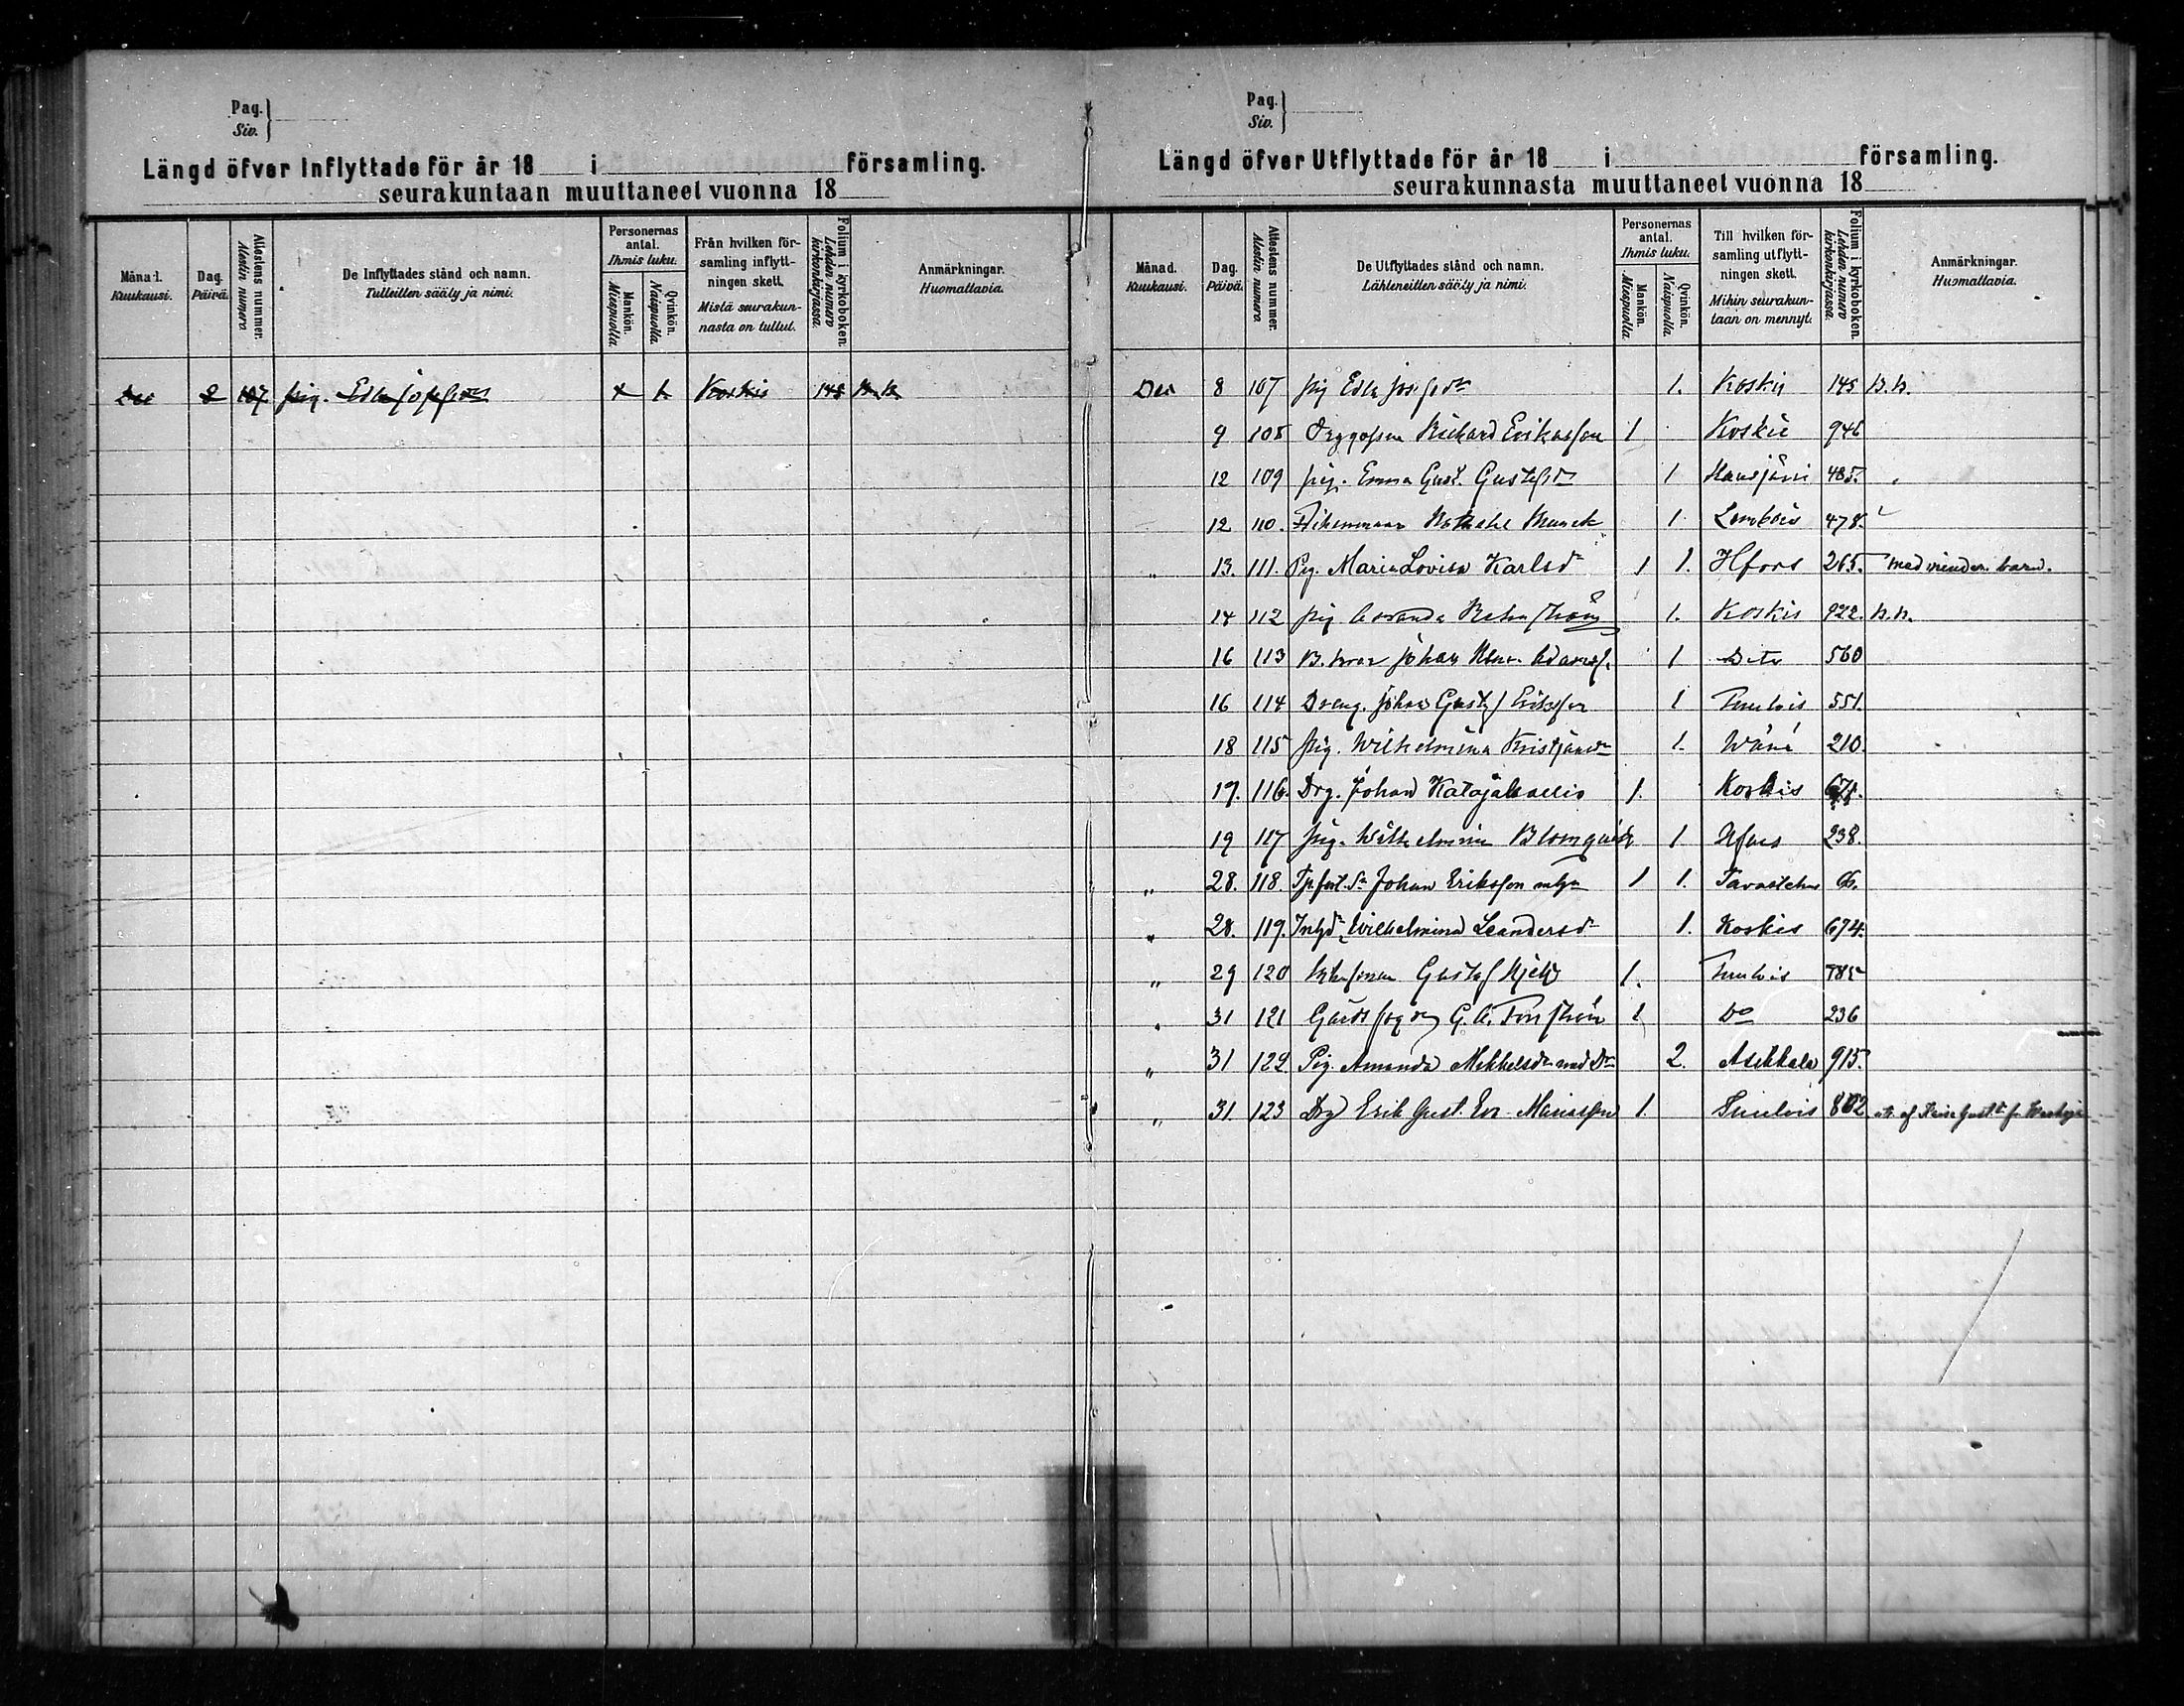 Pag.
Siv.
Längd öfver Inflyttade för år 18 i församling.
seurakuntaan muuttaneet vuonna 18
Månad. Kuukausi.
Dag. Päivä.
Attestens nummer. Alestin numero
De Inflyttades stånd och namn.
Tulleitten sääty ja nimi.
Personernas antal. Ihmis luku.
Mankön. Miespuolia
Qvinkön. Naispuolia
Från hvilken församling inflyttningen skett.
Mistä seurakunnasta on tullut.
Folium i kyrkoboken. Lehden numero kirkonkirjassa.
Anmärkningar.
Huomattavia.
Dec 8 107 pig. Edla Josefsdr 1 Koskis 145 h.h.
Pag.
Siv.
Längd öfver Utflyttade för år 18 i församling.
seurakunnasta muuttaneet vuonna 18
Månad. Kuukausi.
Dag. Päivä.
Attestens nummer. Alestin numero
De Utflyttades stånd och namn.
Lähteneitten sääty ja nimi.
Personernas antal. Ihmis luku.
Mankön. Miespuolia
Qvinkön. Naispuolia
Till hvilken församling utflyttningen skett.
Mihin seurakuntaan on mennyt.
Folium i kyrkoboken. Lehden numero kirkonkirjassa.
Anmärkningar.
Huomattavia.
Dec 8 107 pig Edla Josefsdr 1. Koskis 145 h.h.
9 108 Richard Eriksson 1 Koskis 946
12 109 pig. Emma Gust. Gustafsdr 1 Hausjärvi 485.
12 110. Munck 1 Lembois 478.
" 13. 111. Pig. Maria Lovisa Karlsdr 1 1. Hfors 265. med minder. barn.
14 112 pig Amanda 1. Koskis 922. h.h.
16 113 Johan 1 Dito 560
16 114 Dreng. Johan Gustaf Eriksson 1 Tuulois 551.
18 115 pig. Wilhelmina Kristjansdr 1. Wånå 210.
19. 116. Drg. Johan Katajakallio 1. Koskis 671.
19 117 pig. Wilhelmina Blomqvist 1. Hfors 238.
" 28. 118. Johan Eriksson 1 1. Tavastehus
" 28. 119. Wilhelmina Leandersdr 1. Koskis 674.
" 29 120 Gustaf 1. Tuulois 785
" 31 121 G. A. 1 Do 236
" 31 122 Pig. Amanda Mikkelsdr med Dr 2. Asikkala 915.
" 31. 123 Drg Erik Gust. Ev. Mariasson 1. Tuulois 802